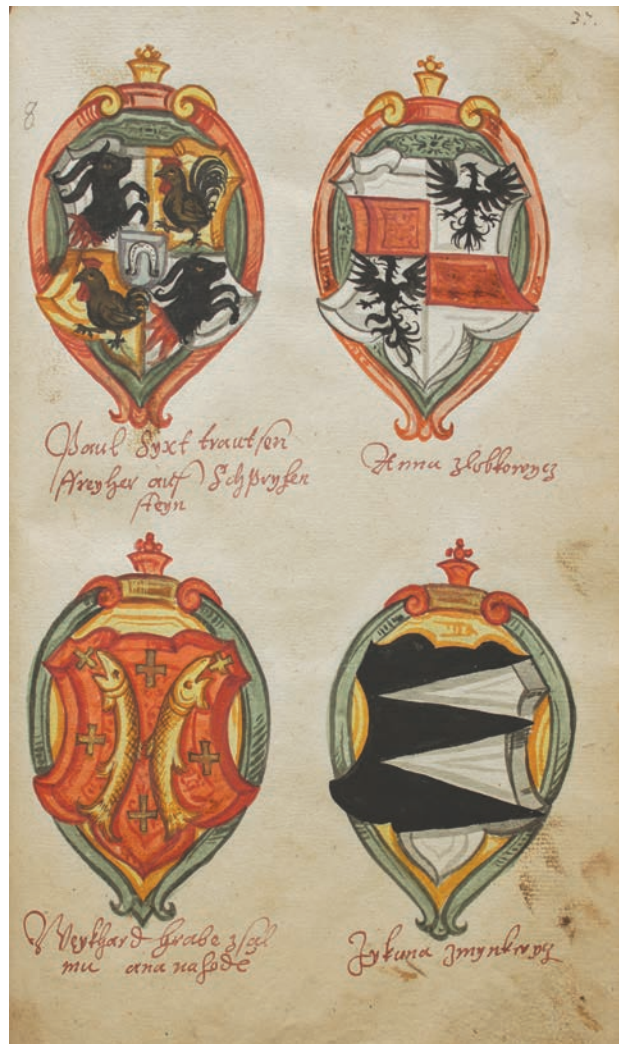 37.
8
Paul Syxt trautsen
ffreyher auf Schpryhen
steyn
Anna zlobkowycz
Weykhard hrabe z sal
mu ana nahode